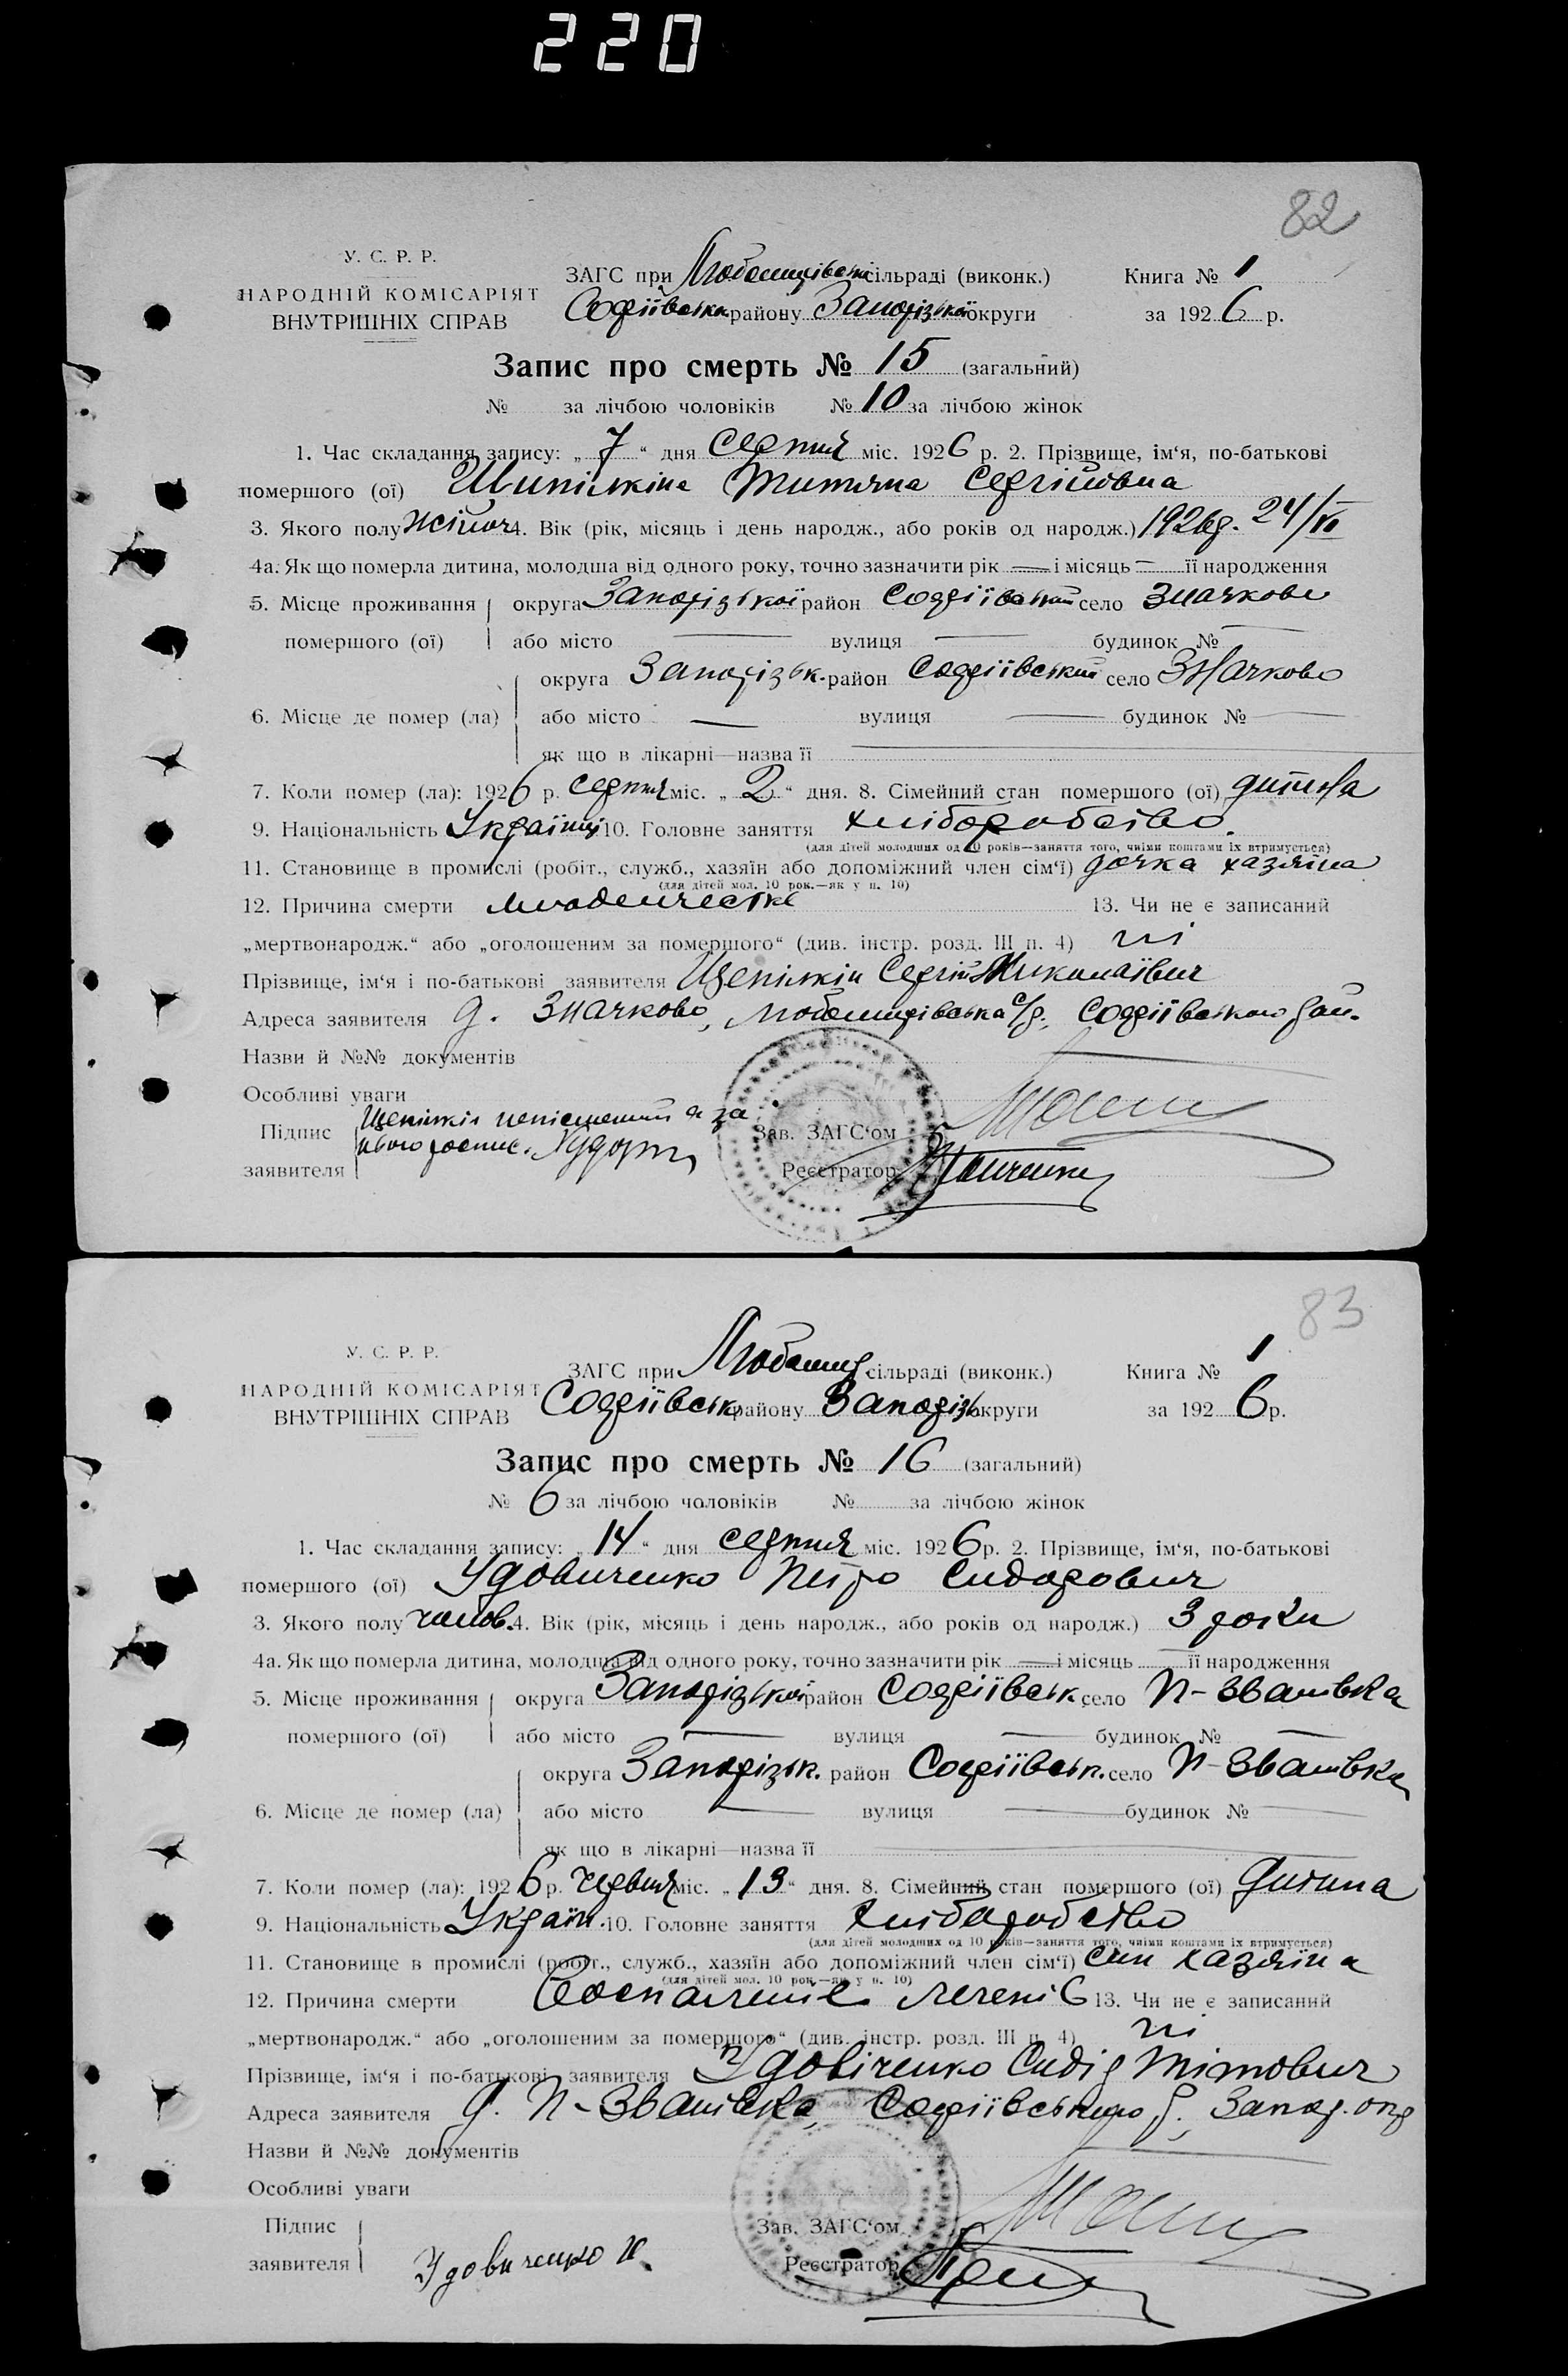 220
82
У. С. Р. Р.
НАРОДНІЙ КОМІСАРІЯТ
ВНУТРІШНІХ СПРАВ
ЗАГС при сільраді (виконк.)
Софіївськ району Запорізької округи
Книга № 1
за 1926 р.
Запис про смерть № 15 (загальний)
№ за лічбою чоловіків № 10 за лічбою жінок
1. Час складання запису: „ 7 “ дня Серпня міс. 1926 р. 2. Прізвище, ім‘я, по-батькові
помершого (ої) Титяна Сергіївна
3. Якого полу жіноч 4. Вік (рік, місяць і день народж., або років од народж.) 1926р. 24/VI
4а. Як що померла дитина, молодша від одного року, точно зазначити рік — і місяць — її народження
5. Місце проживання округа Запорізької район Софіївський село Значково
помершого (ої) або місто — вулиця — будинок № —
округа Запорізьк. район Софіївський село Значково
6. Місце де помер (ла) або місто — вулиця — будинок № —
як що в лікарні—назва її —
7. Коли помер (ла): 1926 р. серпня міс. „ 2 “ дня. 8. Сімейний стан помершого (ої) дитина
9. Національність Україн 10. Головне заняття хліборобство.
(для дітей молодших од 10 років—заняття того, чиїми коштами їх втримується)
11. Становище в промислі (робіт., служб., хазяїн або допоміжний член сім‘ї) дочка хазяїна
(для дітей мол. 10 рок.—як у п. 10)
12. Причина смерти младенчестке 13. Чи не є записаний
„мертвонародж.“ або „оголошеним за помершого“ (див. інстр. розд. III п. 4) ні
Прізвище, ім‘я і по-батькові заявителя Щепілкін Сергій Миколаївич
Адреса заявителя д. Значково, с/р. Софіївського рай.
Назви й №№ документів
Особливі уваги
Щепілкін неписьменний а за
Підпис нього роспис.
Зав. ЗАГС‘ом
заявителя
Реєстратор
83
У. С. Р. Р.
НАРОДНІЙ КОМІСАРІЯТ
ВНУТРІШНІХ СПРАВ
ЗАГС при сільраді (виконк.)
Софіївськ району Запорізь округи
Книга № 1
за 1926 р.
Запис про смерть № 16 (загальний)
№ 6 за лічбою чоловіків № за лічбою жінок
1. Час складання запису: „ 14 “ дня серпня міс. 1926 р. 2. Прізвище, ім‘я, по-батькові
помершого (ої) Удовиченко Петро Сидорович
3. Якого полу чолов. 4. Вік (рік, місяць і день народж., або років од народж.) 3 роки
4а. Як що померла дитина, молодша від одного року, точно зазначити рік — і місяць її народження
5. Місце проживання округа Запорізької район Софіївськ. село П-Званівка
помершого (ої) або місто — вулиця — будинок № —
округа Запорізьк. район Софіївськ. село П-Званівка
6. Місце де помер (ла) або місто — вулиця — будинок № —
як що в лікарні—назва її —
7. Коли помер (ла): 1926 р. червня міс. „ 13 “ дня. 8. Сімейний стан помершого (ої) дитина
9. Національність Україн. 10. Головне заняття хліборобство
(для дітей молодших од 10 років—заняття того, чиїми коштами їх втримується)
11. Становище в промислі (робіт., служб., хазяїн або допоміжний член сім‘ї) син хазяїна
(для дітей мол. 10 рок.—як у п. 10)
12. Причина смерти Воспаленіе 13. Чи не є записаний
„мертвонародж.“ або „оголошеним за помершого“ (див. інстр. розд. III п. 4) ні
Прізвище, ім‘я і по-батькові заявителя Удовіченко Сидір Тітович
Адреса заявителя д. П-Званівка, Софіївського р., Запор. окр
Назви й №№ документів
Особливі уваги
Підпис
Зав. ЗАГС‘ом
заявителя Удовиченко
Реєстратор